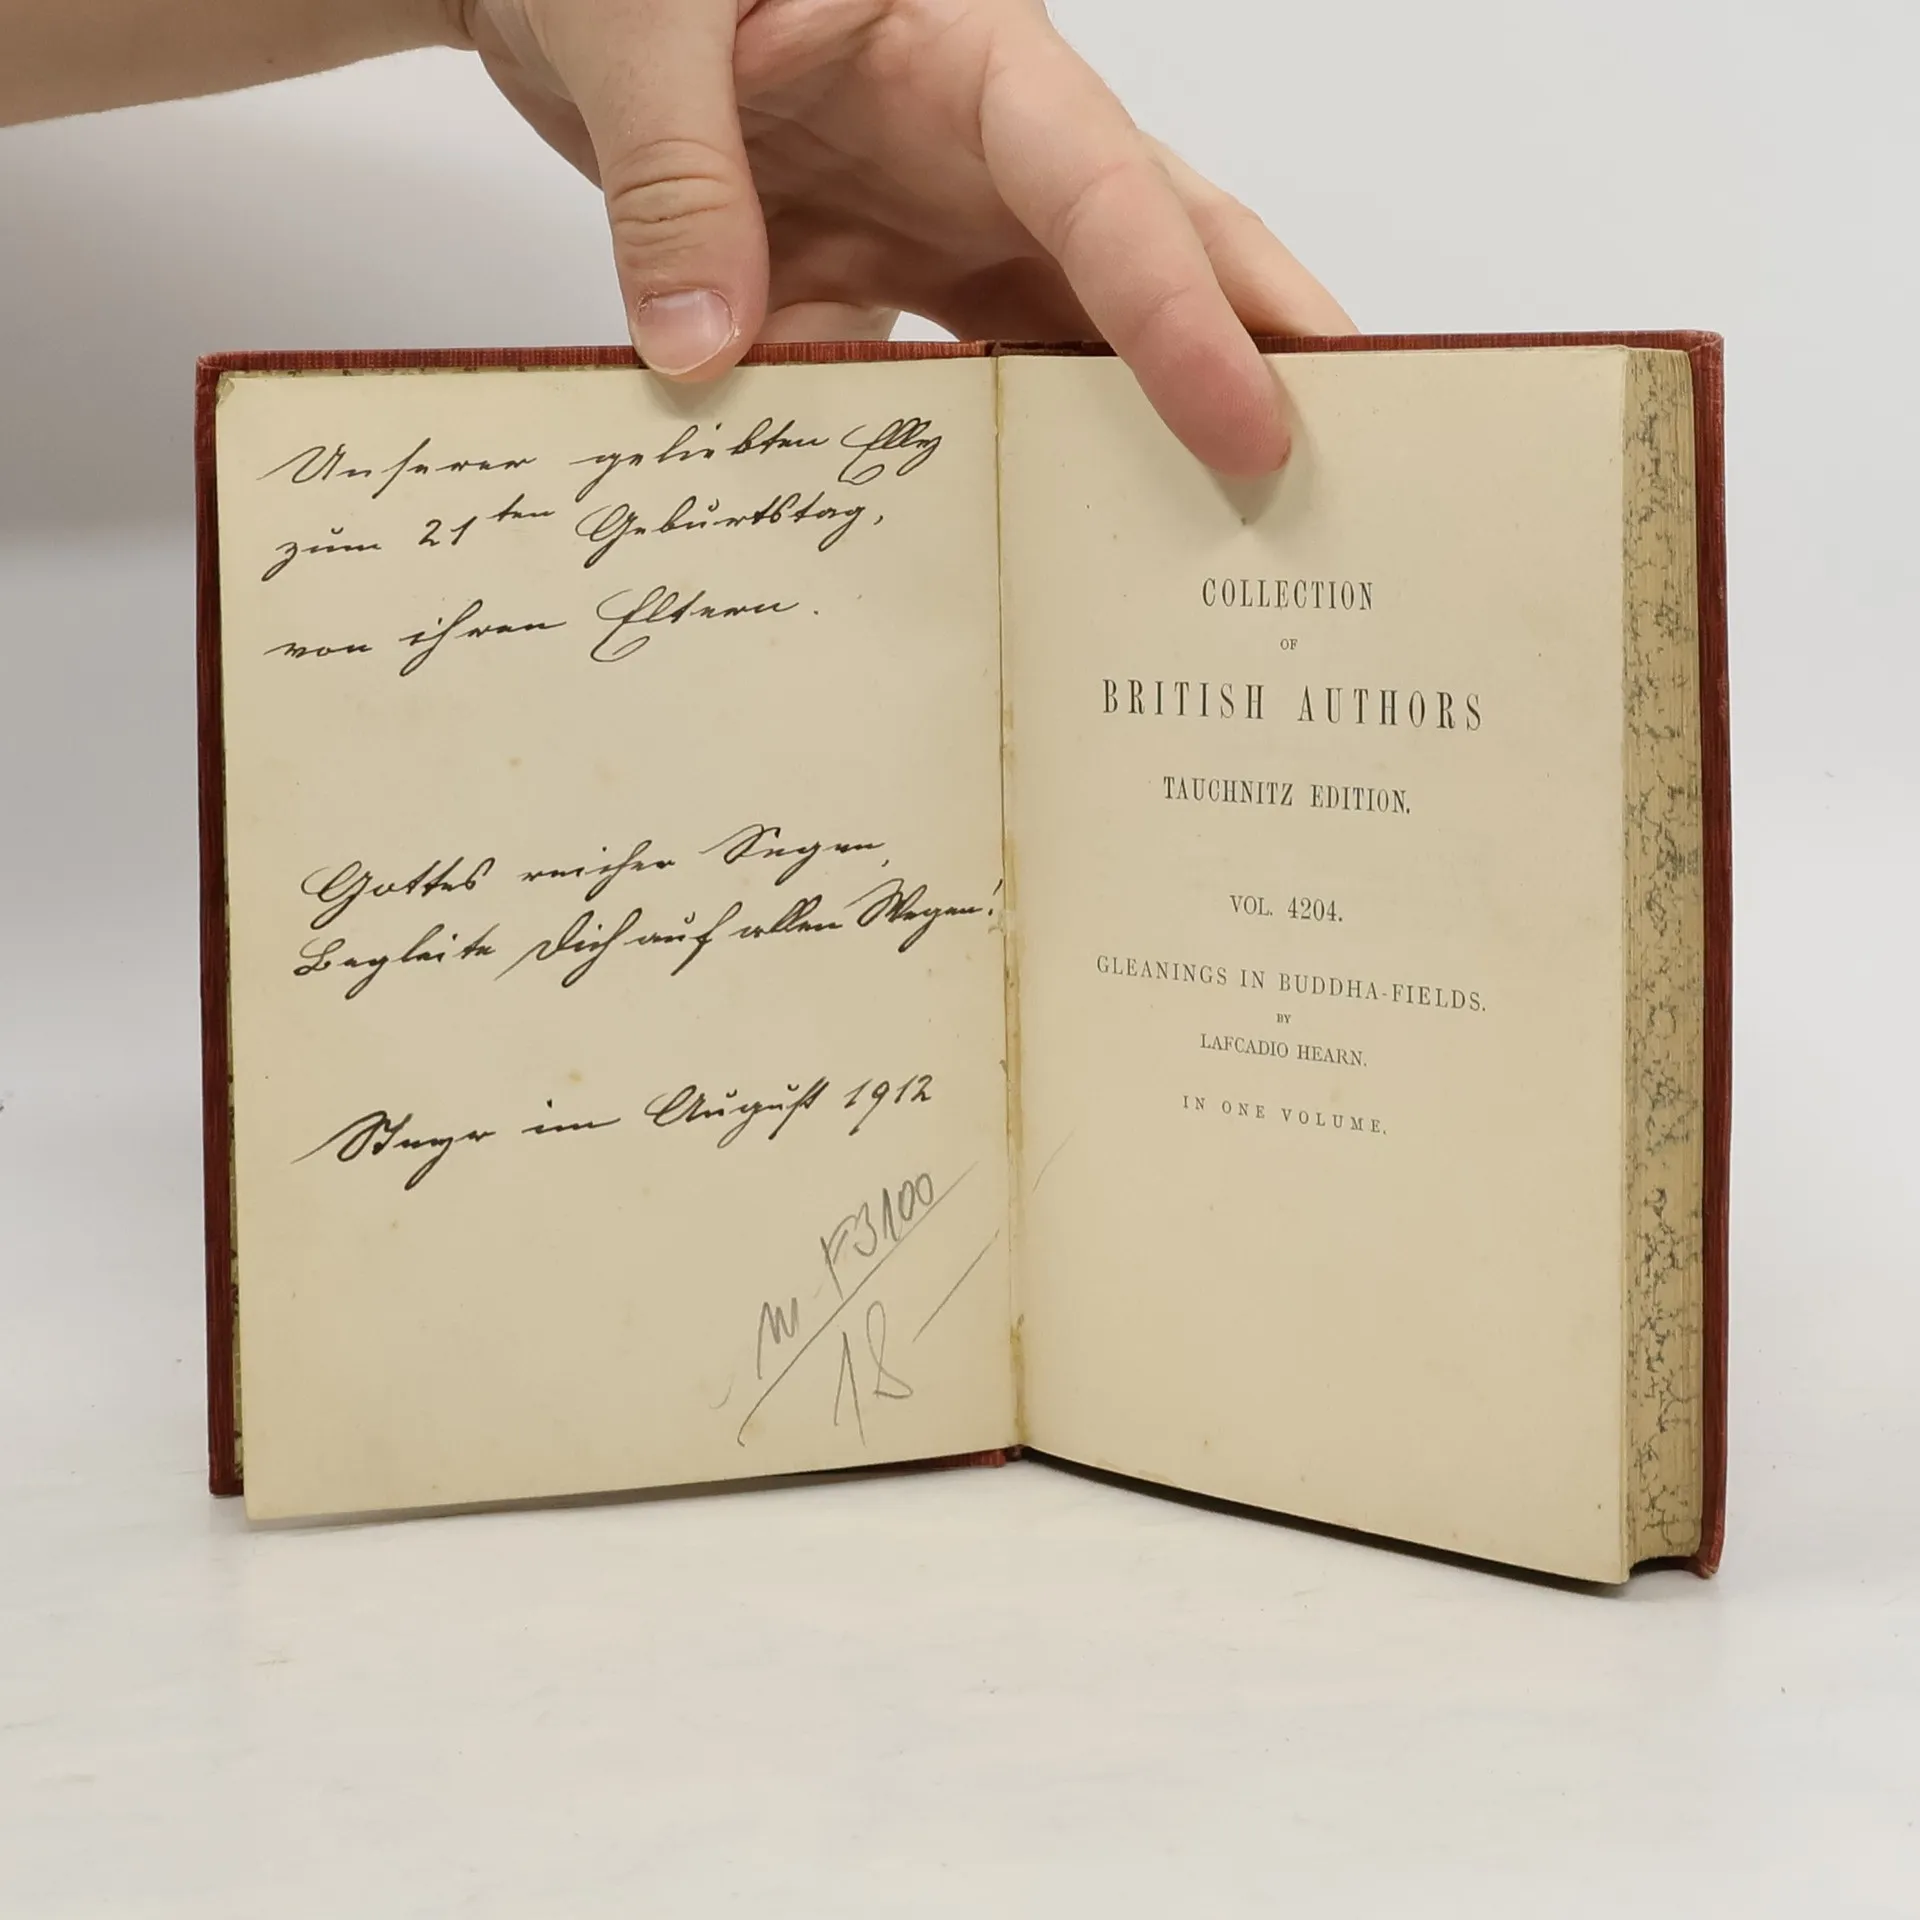 Unserer geliebten Elly
zum 21ten Geburtstag,
von ihren Eltern.
Gottes reicher Segen,
Begleite Dich auf allen Wegen!
Steyr im August 1912
F3100
18
COLLECTION
OF
BRITISH AUTHORS
TAUCHNITZ EDITION.
VOL. 4204.
GLEANINGS IN BUDDHA-FIELDS.
BY
LAFCADIO HEARN.
IN ONE VOLUME.